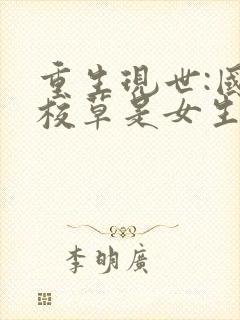 重生現世:國
校草是女生
李明廣